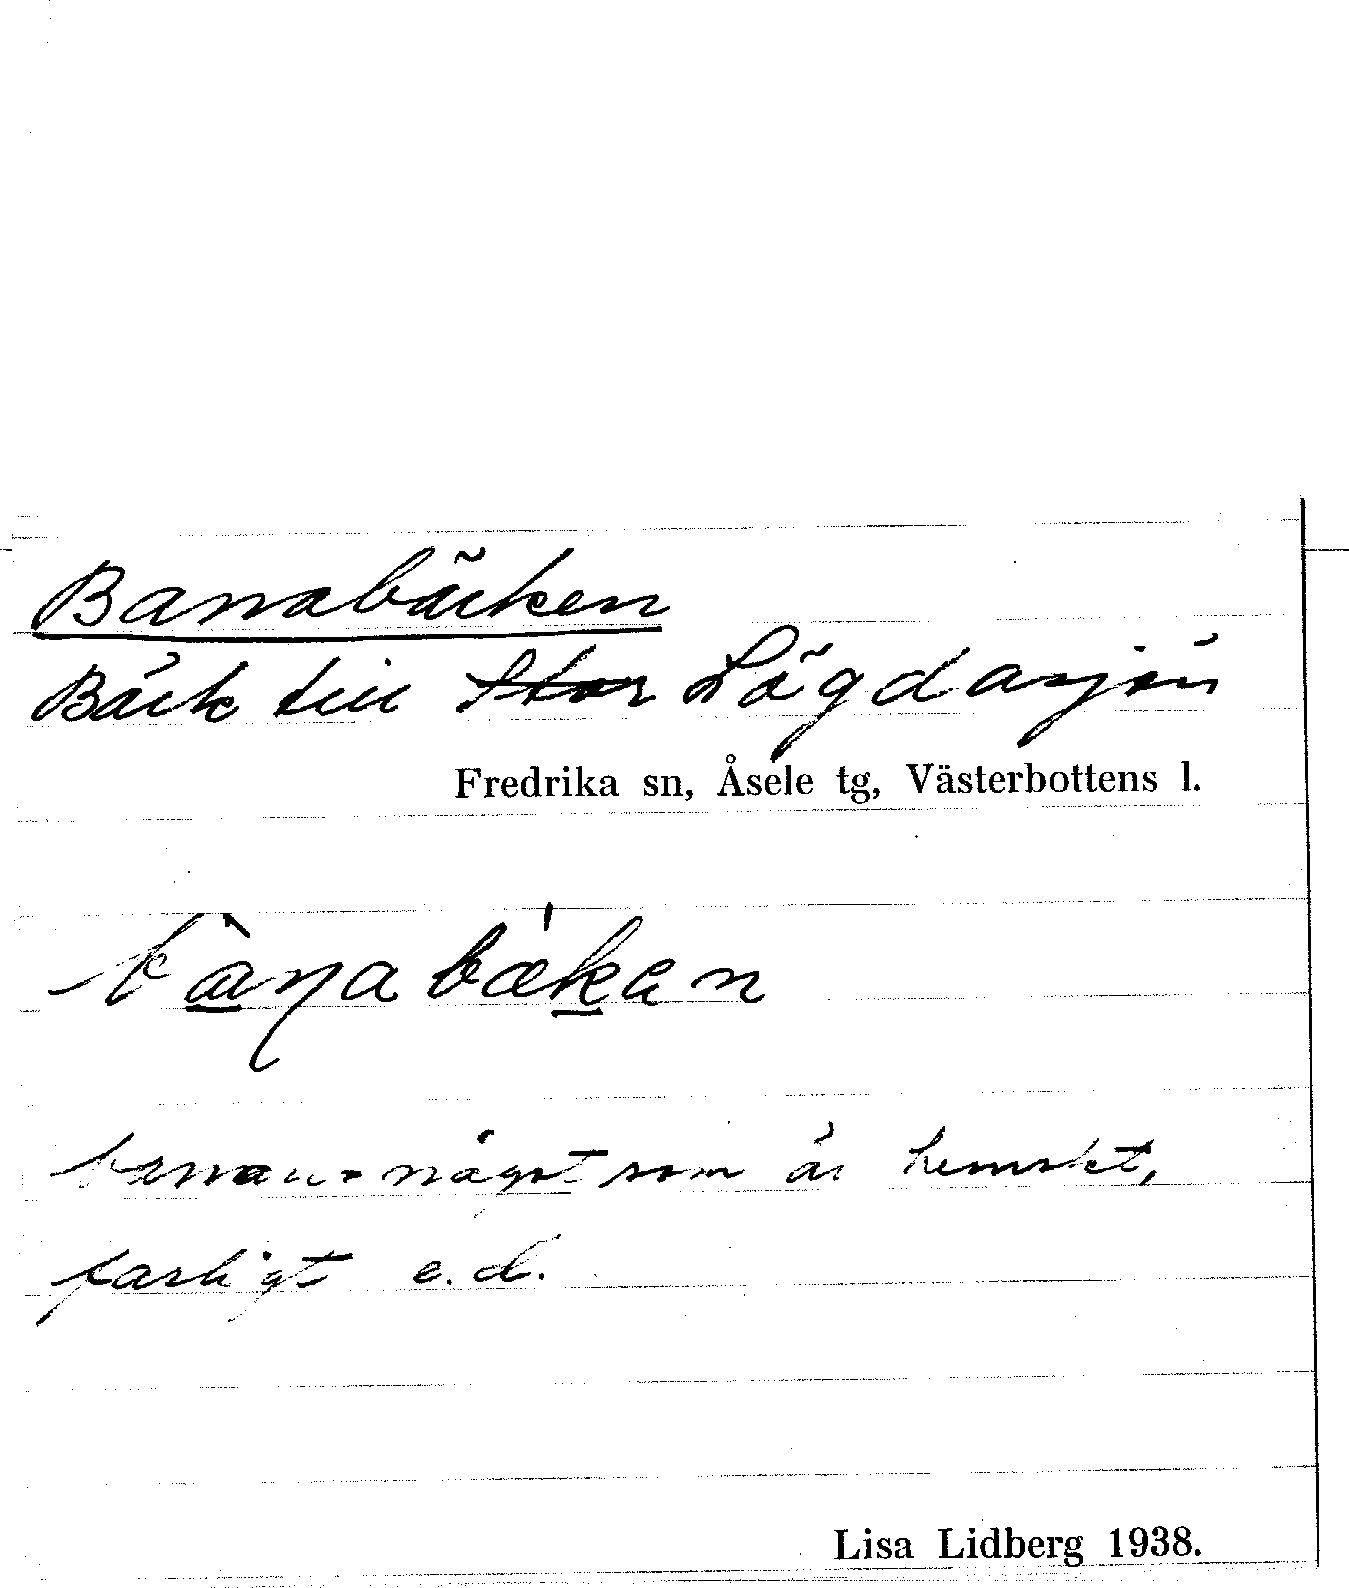 Banabäcken
Bäck till Stor Lögdasjön
Fredrika sn, Åsele tg, Västerbottens l.
bàŋabækan
något som är hemskt,
farligt e.d.
Lisa Lidberg 1938.